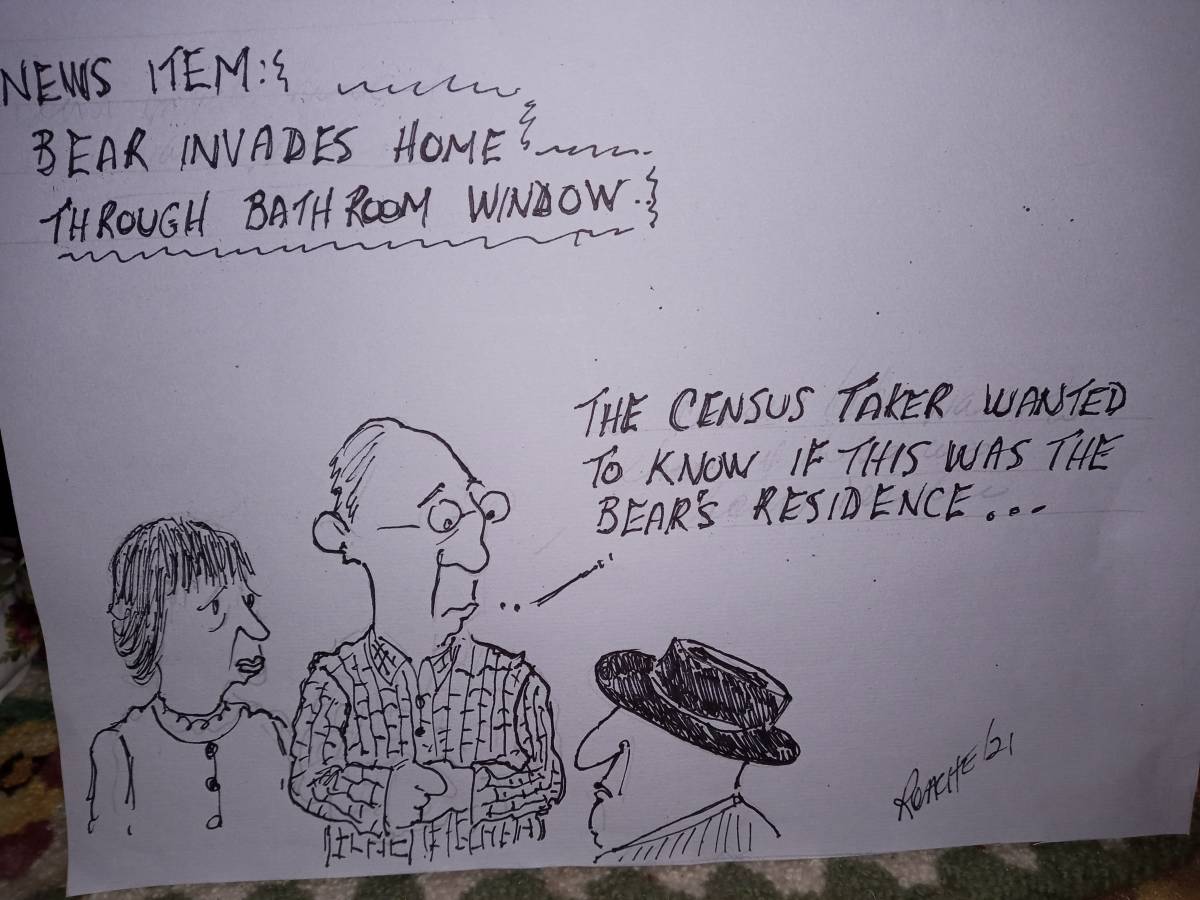 NEWS ITEM:
BEAR INVADES HOME
THROUGH BATHROOM WINDOW..
THE CENSUS TAKER WANTED
TO KNOW IF THIS WAS THE
BEAR'S RESIDENCE...
ROACHE '21